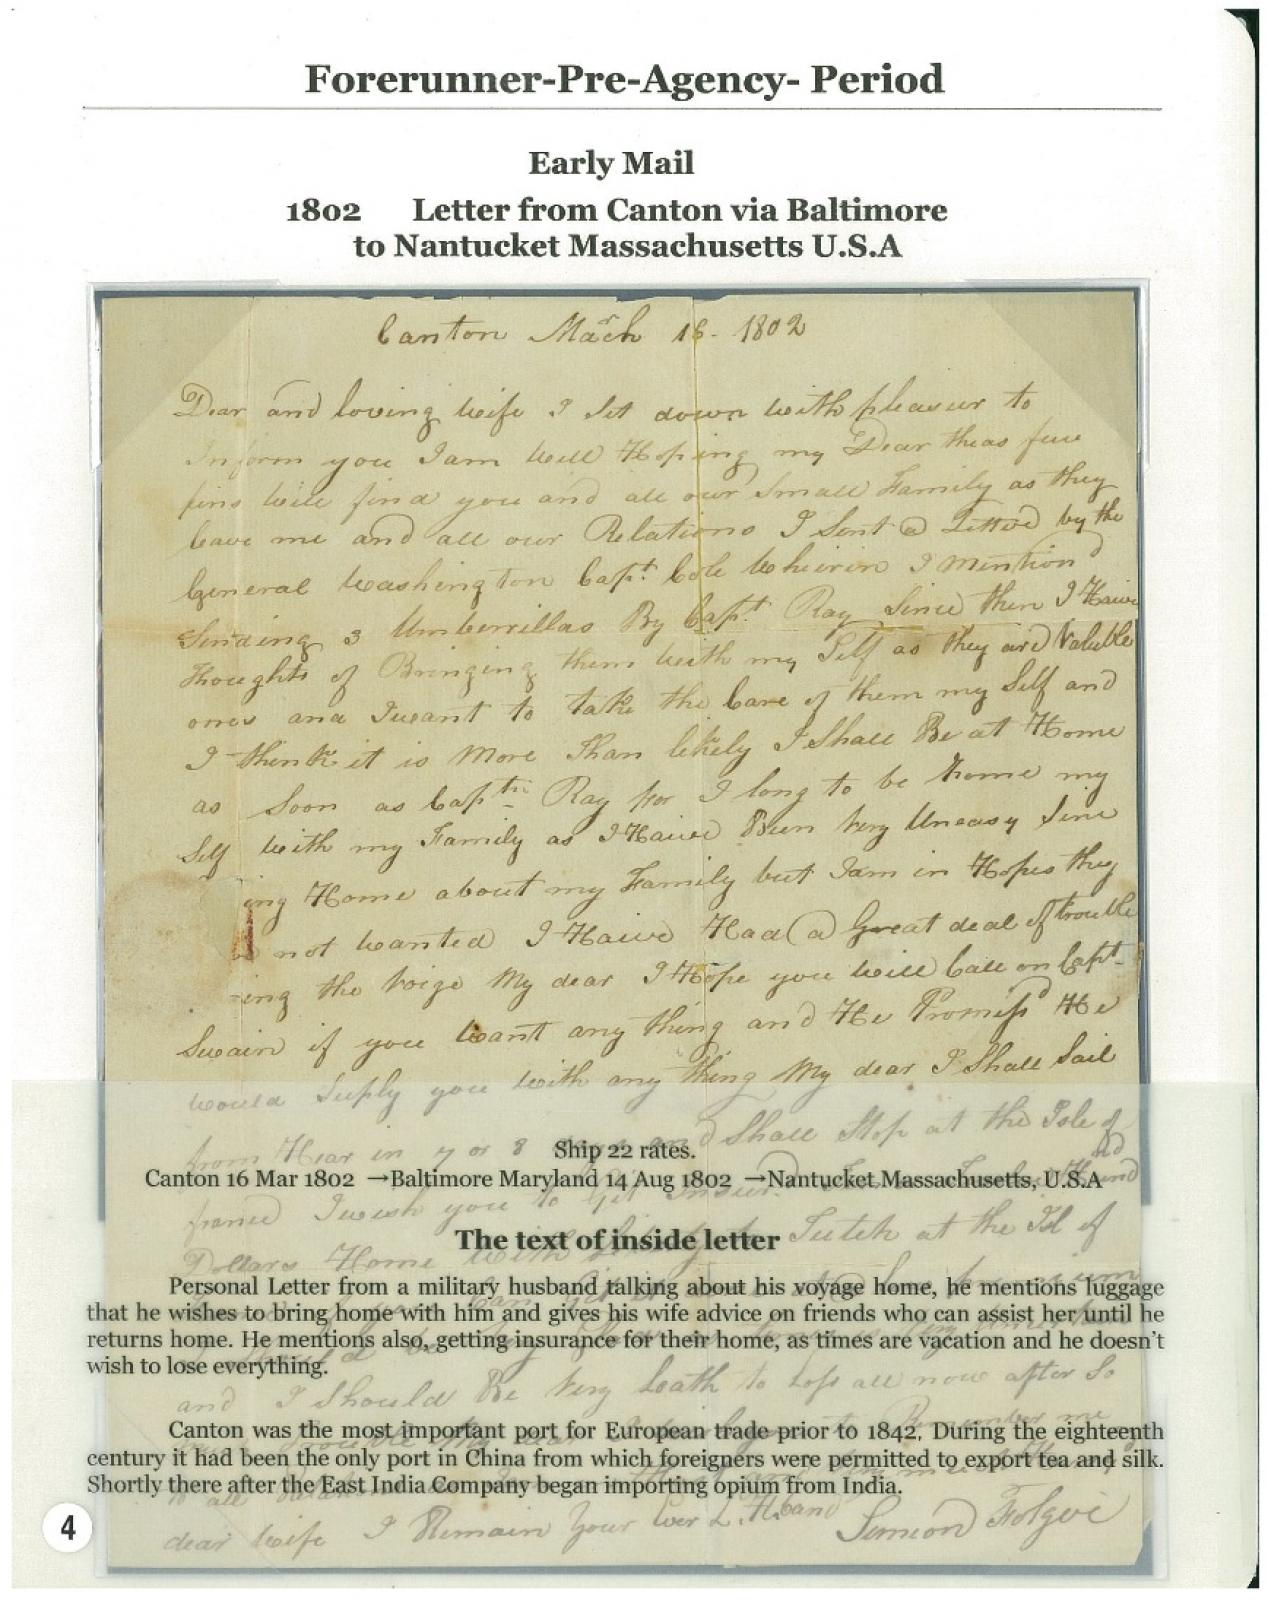 Forerunner-Pre-Agency- Period
Early Mail
1802 Letter from Canton via Baltimore
to Nantucket Massachusetts U.S.A
Canton March 16 - 1802
Dear and loving wife I Set down with pleasur to
Inform you I am well Hoping my Dear theas few
lins will find you and all our Small Family as they
leave me and all our Relations I Sent a Letter by the
General Washington Capt. Cole Wheirin I mention
Sending 3 Umberrillas By Capt. Ray Since then I Haive
thoughts of Bringing them with my Self as they are Valuble
ones and I want to take the Care of them my Self and
I think it is More than likely I Shall Be at Home
as Soon as Capt. Ray for I long to be home my
Self with my Family as I Haive Bun Very Uneasy Sinc
ing Home about my Family but I am in Hopes they
not wanted I Haive Had a Great deal of trouble
ing the Voige My dear I Hope you will Call on Capt-
Swain if you want any thing and He Promisd He
would Suply you with any thing My dear I Shall Sail
from Hear in 7 or 8 and Shall Stop at the Isle of
Ship 22 rates.
Canton 16 Mar 1802 →Baltimore Maryland 14 Aug 1802 →Nantucket Massachusetts, U.S.A
I wish you to Git
Dollars Home with at the Isl of
The text of inside letter
Personal Letter from a military husband talking about his voyage home, he mentions luggage
that he wishes to bring home with him and gives his wife advice on friends who can assist her until he
returns home. He mentions also, getting insurance for their home, as times are vacation and he doesn't
wish to lose everything.
and I Should Be Very Loath to Loss all now after So
Canton was the most important port for European trade prior to 1842. During the eighteenth
century it had been the only port in China from which foreigners were permitted to export tea and silk.
Shortly there after the East India Company began importing opium from India.
dear wife I Remain Your
4